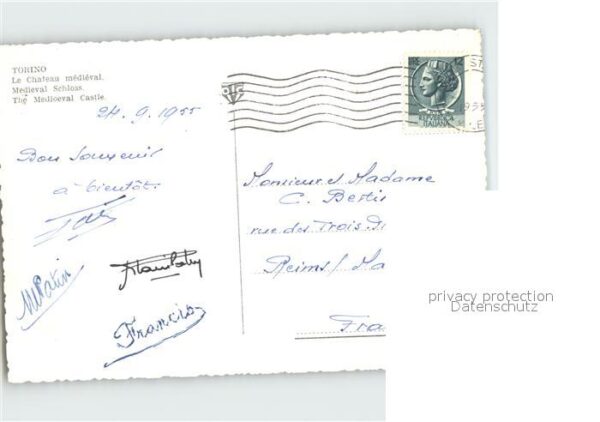 TORINO
Le Chateau médiéval.
Medieval Schloss.
The Medioeval Castle.
24.9.1955
Bon Souvenir
à bientôt.
M Patin
Francis
Monsieur et Madame
C. Bertin
rue des Trois
Reims / Ma
Fra
privacy protection
Datenschutz